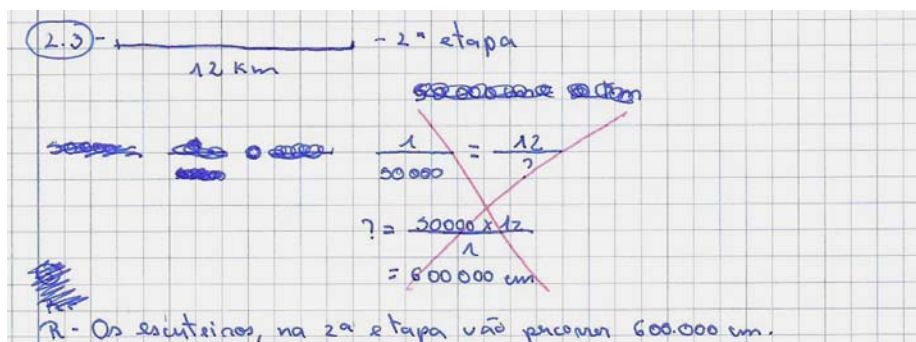 2.3 - - 2ª etapa
12 Km
1/50000 = 12/?
? = 50000 x 12 / 1
= 600 000 cm
R - Os escuteiros, na 2ª etapa vão percorrer 600.000 cm.